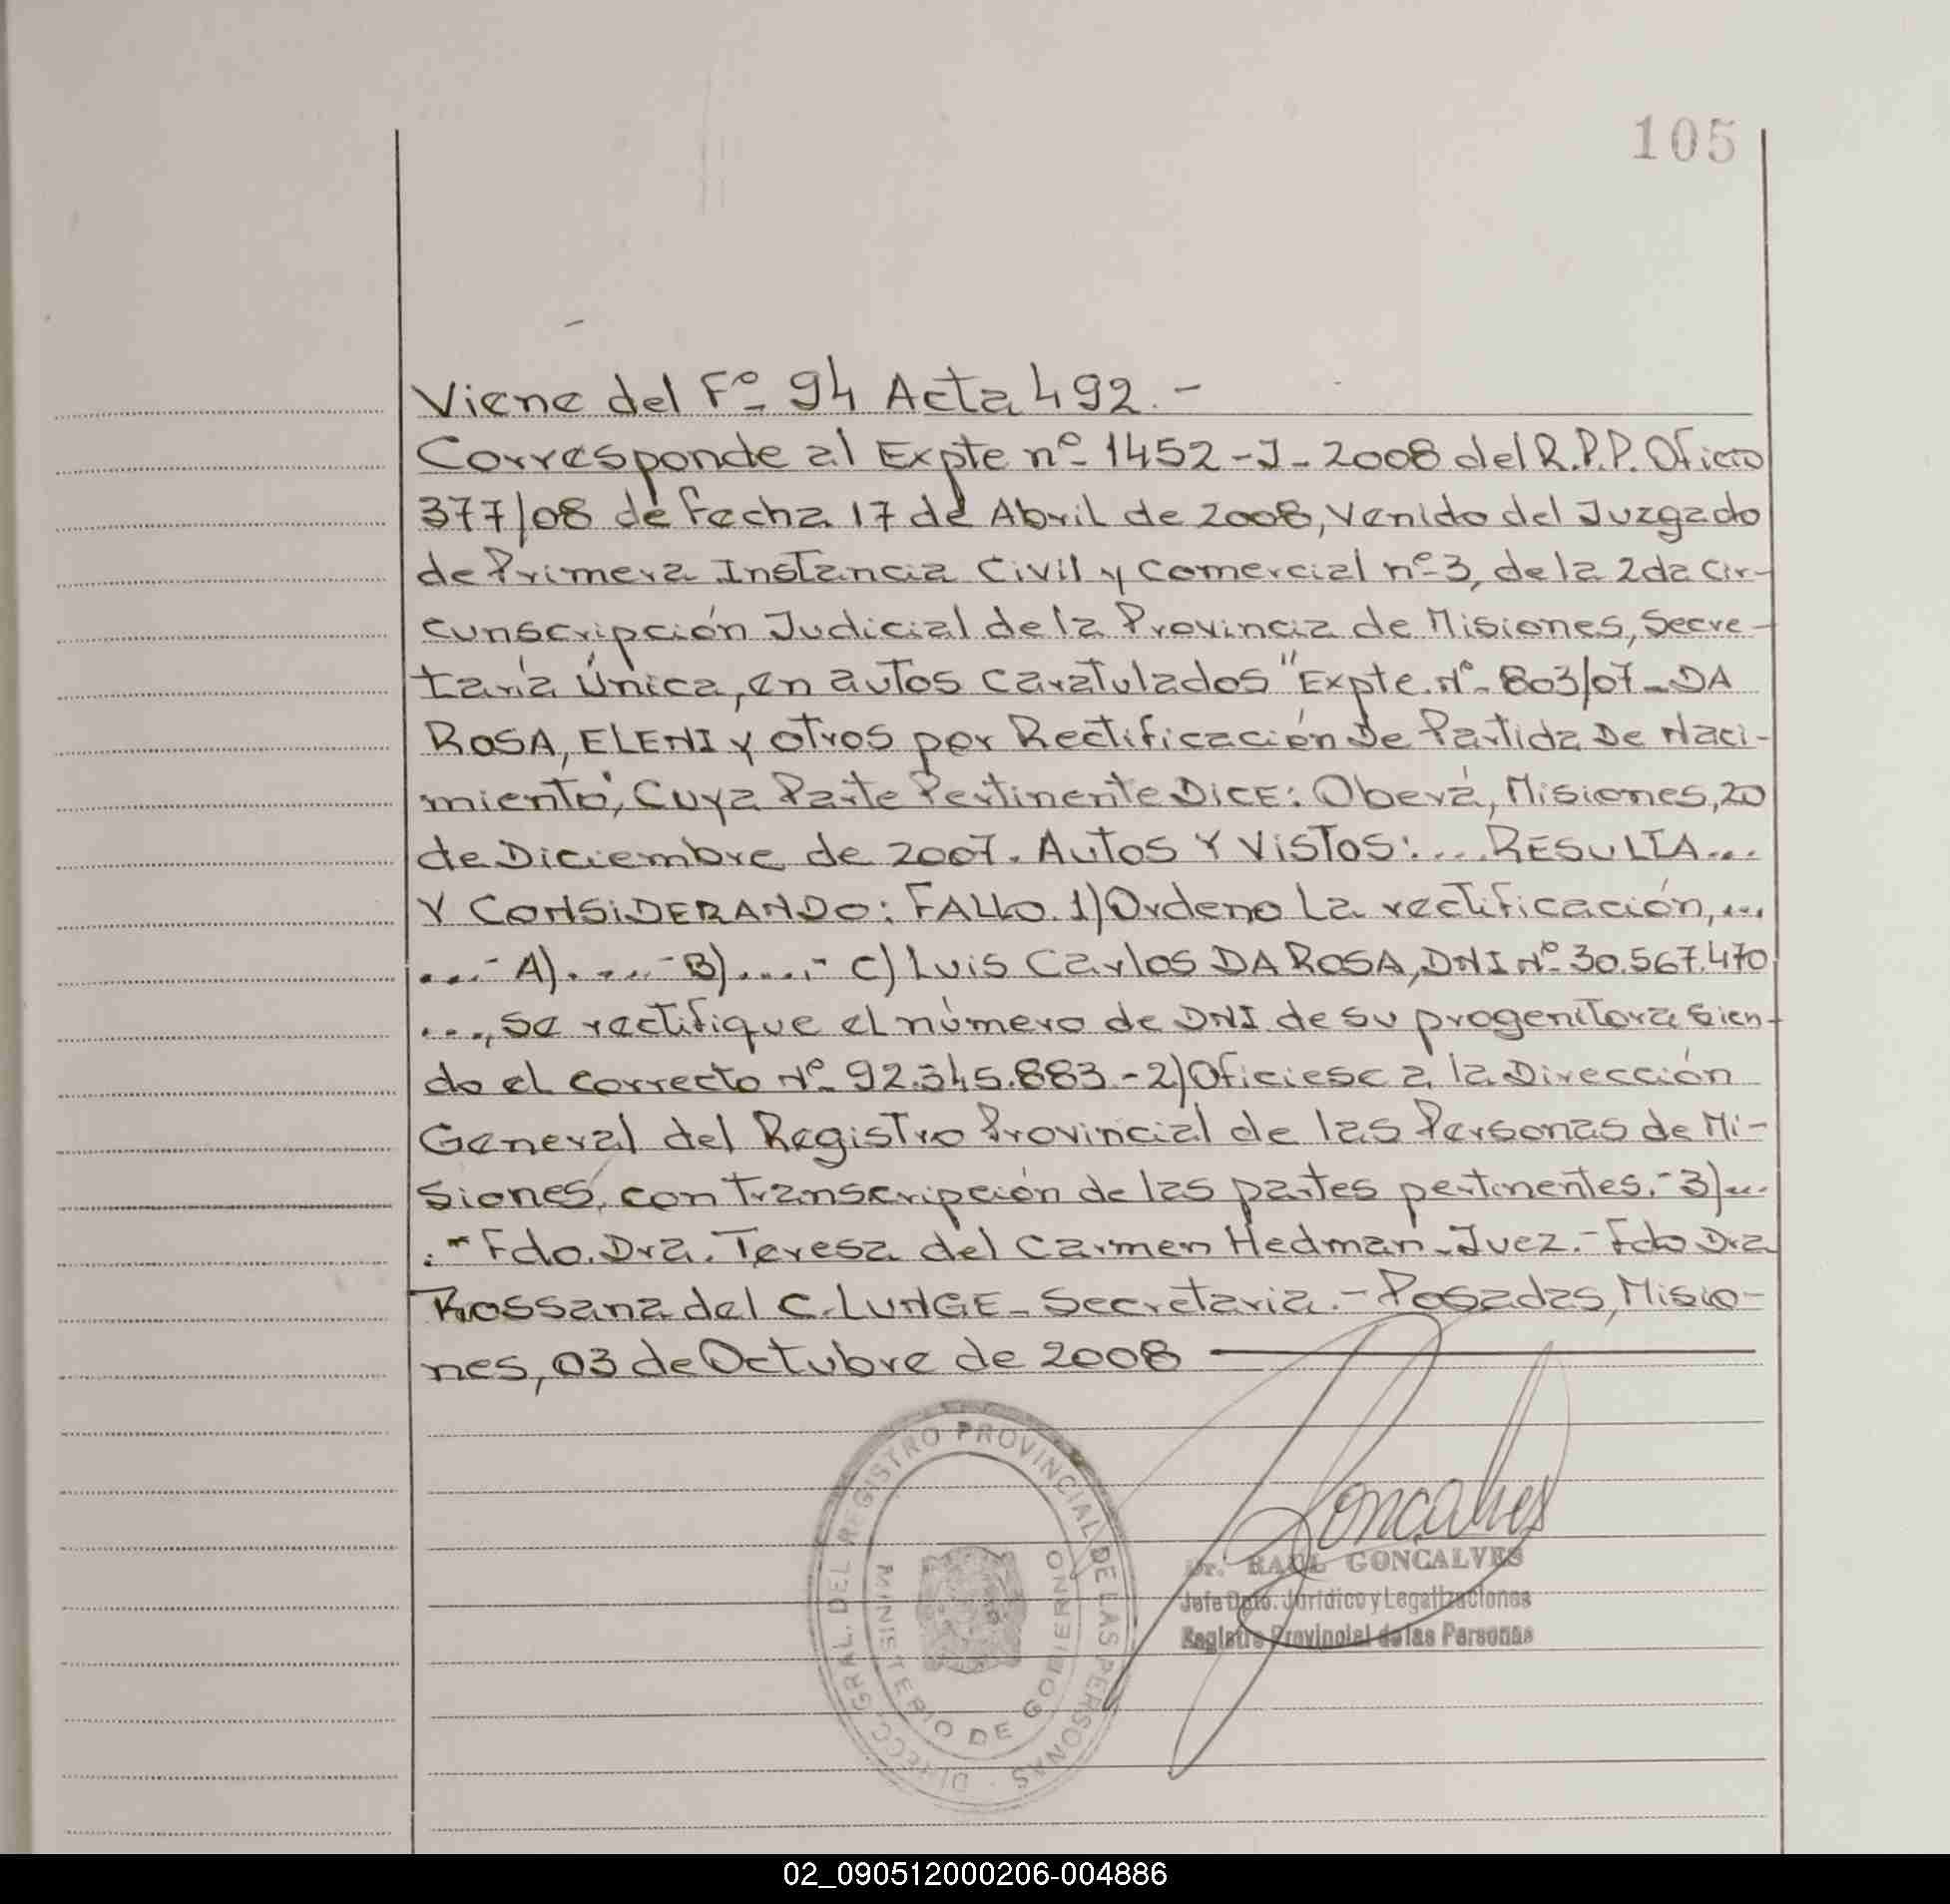 105
Viene del Fº 94 Acta 492.-
Corresponde al Expte nº 1452-J-2008 del R.P.P. Oficio
377/08 de fecha 17 de Abril de 2008, Venido del Juzgado
de Primera Instancia Civil y Comercial nº 3, de la 2da Cir-
cunscripción Judicial de la Provincia de Misiones, Secre-
taría Única, en autos caratulados "Expte. Nº 803/07-DA
ROSA, ELENI y otros por Rectificación De Partida De Naci-
miento", Cuya Parte Pertinente DICE: Oberá, Misiones, 20
de Diciembre de 2007. Autos Y VISTOS:....RESULTA...
Y CONSIDERANDO: FALLO. 1) Ordeno La rectificación,...
...- A).....- B).....- C) Luis Carlos DA ROSA, DNI Nº 30.567.470
..., se rectifique el número de DNI de su progenitora sien-
do el correcto Nº 92.345.883.-2) Oficiese a la Dirección
General del Registro Provincial de las Personas de Mi-
siones, con transcripción de las partes pertinentes.- 3)...
.- Fdo. Dra. Teresa del Carmen Hedman. Juez.- Fdo Dra
Rossana del C. LUNGE- Secretaria.- Posadas, Misio-
nes, 03 de Octubre de 2008
DIRECC. GRAL. DEL REGISTRO PROVINCIAL DE LAS PERSONAS
MINISTERIO DE GOBIERNO
Goncalves
Dr. RAUL GONCALVES
Jefe Dpto. Jurídico y Legalizaciones
Registro Provincial de las Personas
02_090512000206-004886